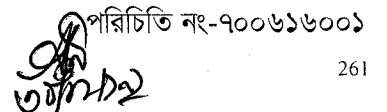 পরিচিতি নং-৭০০৬১৬০০১
261